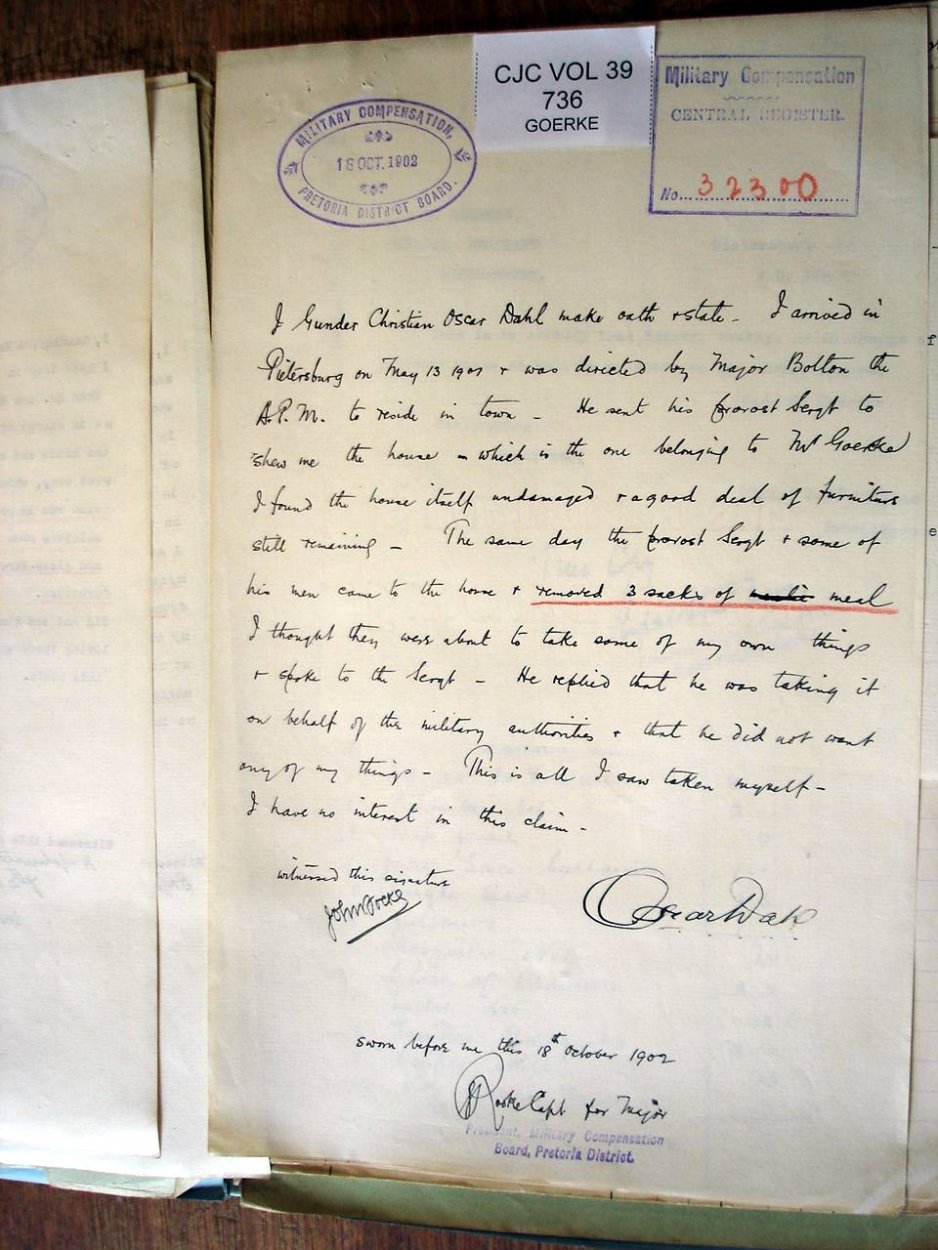 CJC VOL 39
736
GOERKE
MILITARY COMPENSATION,
18 OCT. 1902
PRETORIA DISTRICT BOARD.
Military Compensation
CENTRAL REGISTER.
No. 32300
I Gunder Christian Oscar Dahl make oath & state - I arrived in
Pietersburg on May 13 1901 & was directed by Major Bolton the
A.P.M. to reside in town - He sent his provost Sergt to
shew me the house - which is the one belonging to Mr Goerke
I found the house itself undamaged & a good deal of furniture
still remaining - The same day the provost Sergt & some of
his men came to the house & removed 3 sacks of mealie meal
I thought they were about to take some of my own things
& spoke to the Sergt - He replied that he was taking it
on behalf of the military authorities & that he did not want
any of my things - This is all I saw taken myself -
I have no interest in this claim -
witnessed this signature
Oscar Dahl
sworn before me this 18th October 1902
Capt for Major
President, Military Compensation
Board, Pretoria District.